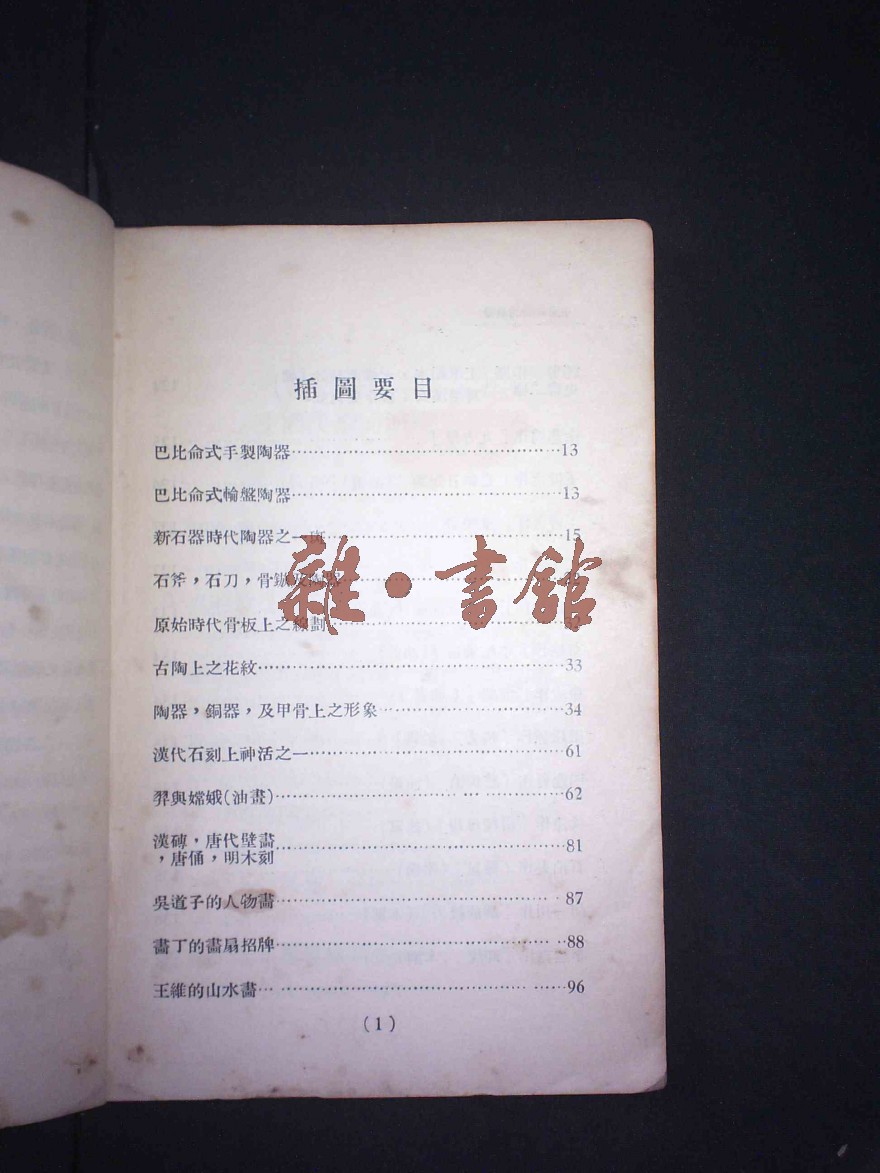 插圖要目
巴比命式手製陶器……13
巴比命式輪盤陶器……13
新石器時代陶器之一斑……15
石斧，石刀，骨鏃及陶器……
原始時代骨板上之線劃……
古陶上之花紋……33
陶器，銅器，及甲骨上之形象……34
漢代石刻上神活之一……61
羿與嫦娥(油畫)……62
漢磚，唐代壁畫
，唐俑，明木刻……81
吳道子的人物畫……87
畫丁的畫扇招牌……88
王維的山水畫……96
(1)
雜·書館